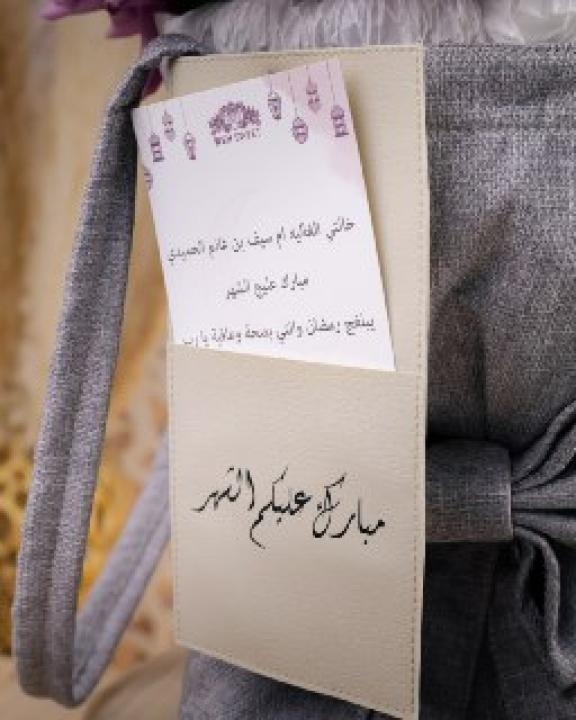 خالتي الغاليه ام سيف بن غانم الحميدي
مبارك عليج الشهر
يبنفج رمضان وانتي بصحة وعافية يا رب
مبارك عليكم الشهر